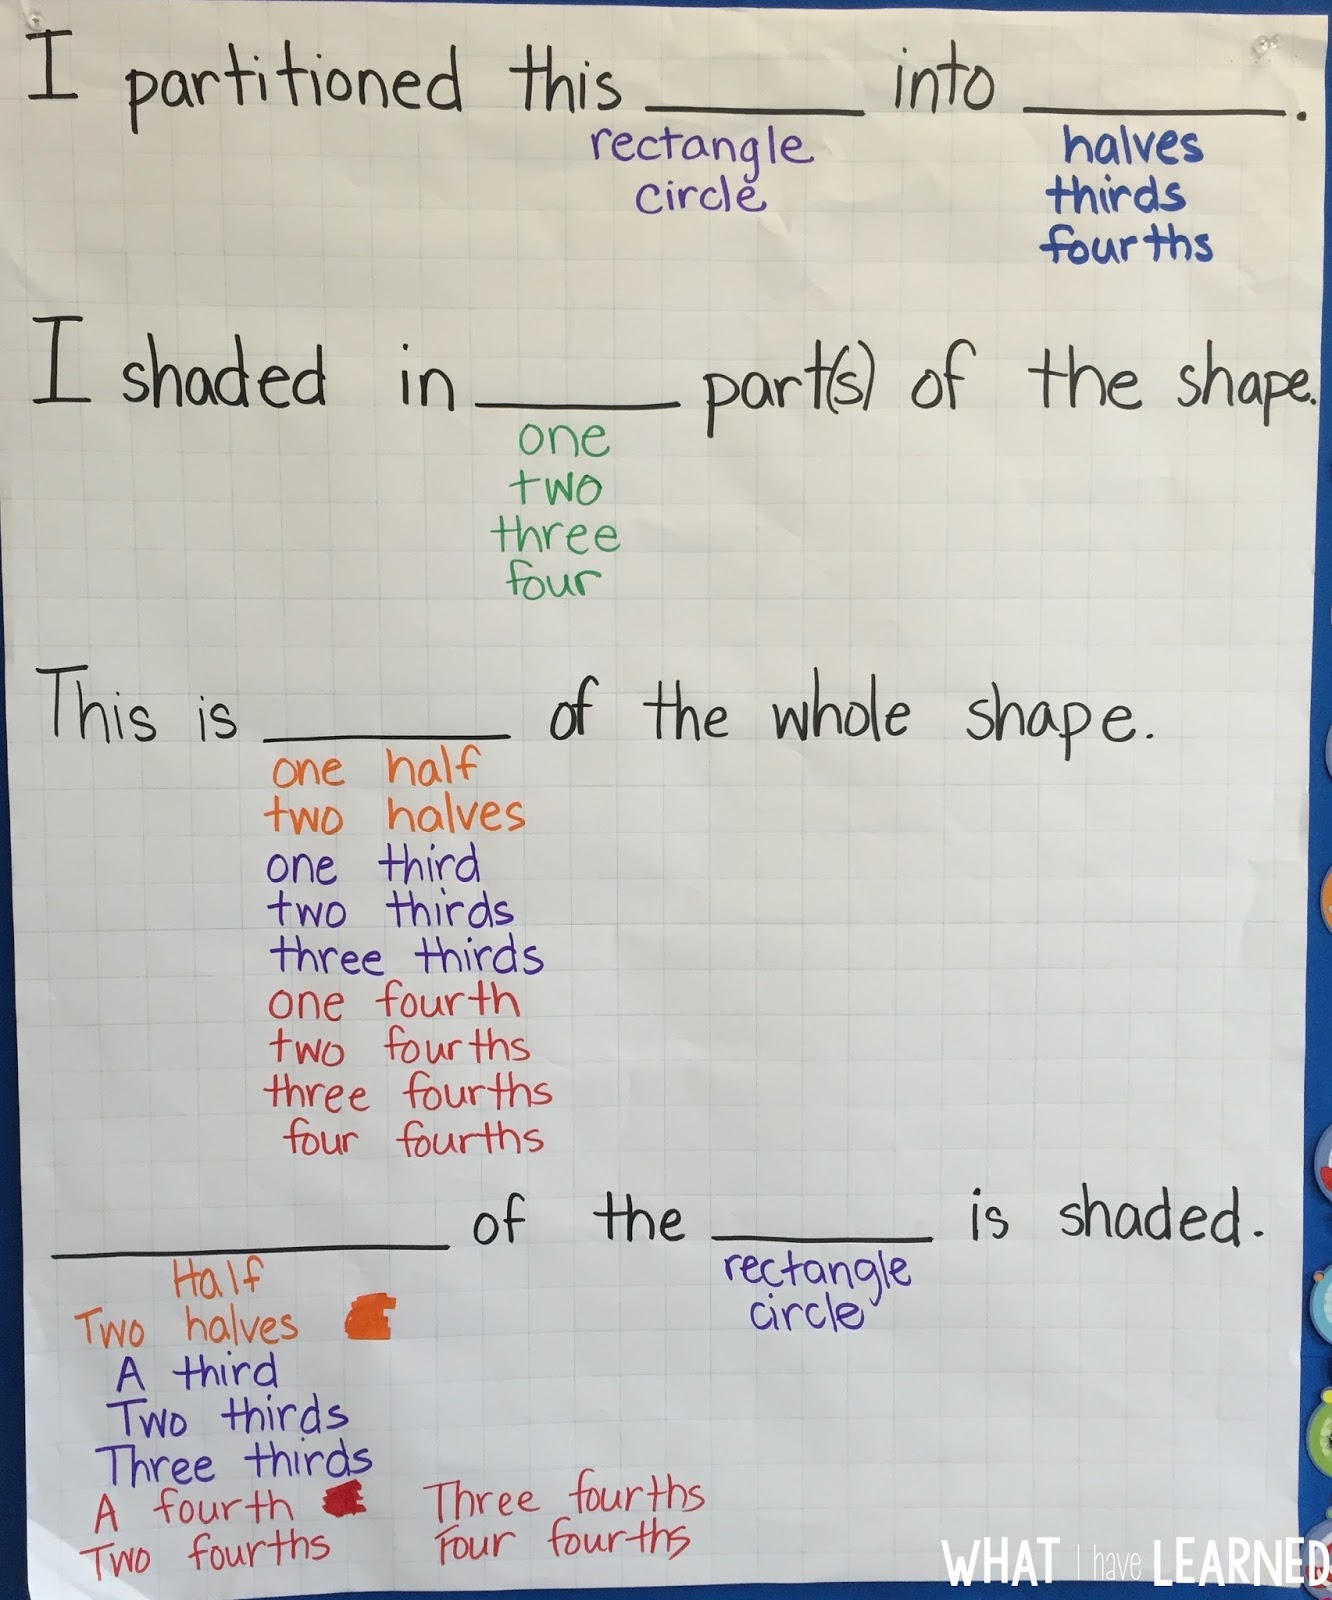 I partitioned this ________ into ________.
rectangle halves
circle thirds
fourths
I shaded in ________ part(s) of the shape.
one
two
three
four
This is ________ of the whole shape.
one half
two halves
one third
two thirds
three thirds
one fourth
two fourths
three fourths
four fourths
________ of the ________ is shaded.
Half rectangle
Two halves circle
A third
Two thirds
Three thirds
A fourth Three fourths
Two fourths Four fourths
WHAT I have LEARNED